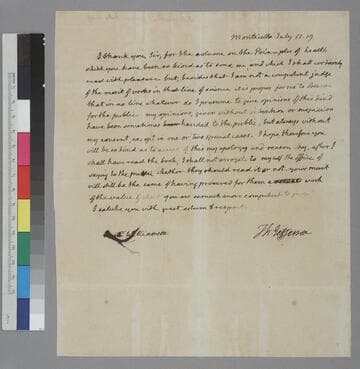 Monticello July 11. 19
I thank you, Sir, for the volume on the Principles of health
which you have been so kind as to send me and which I shall certainly
read with pleasure. but, besides that I am not a competent judge
of the merit of works in that line of science, it is proper for me to observe
that in no line whatever do I presume to give opinions of this kind
for the public. my opinions, given without intention or suspicion
have been sometimes handed to the public, but always without
my consent, except in one or two special cases. I hope therefore you
will be so kind as to accept of this my apology and reason why, after I
shall have read the book, I shall not arrogate to myself the office of
saying to the public whether they should read it or not. your merit
will still be the same of having procured for them a work
of the value of which you are so much more competent to judge.
I salute you with great esteem & respect.
Th: Jefferson